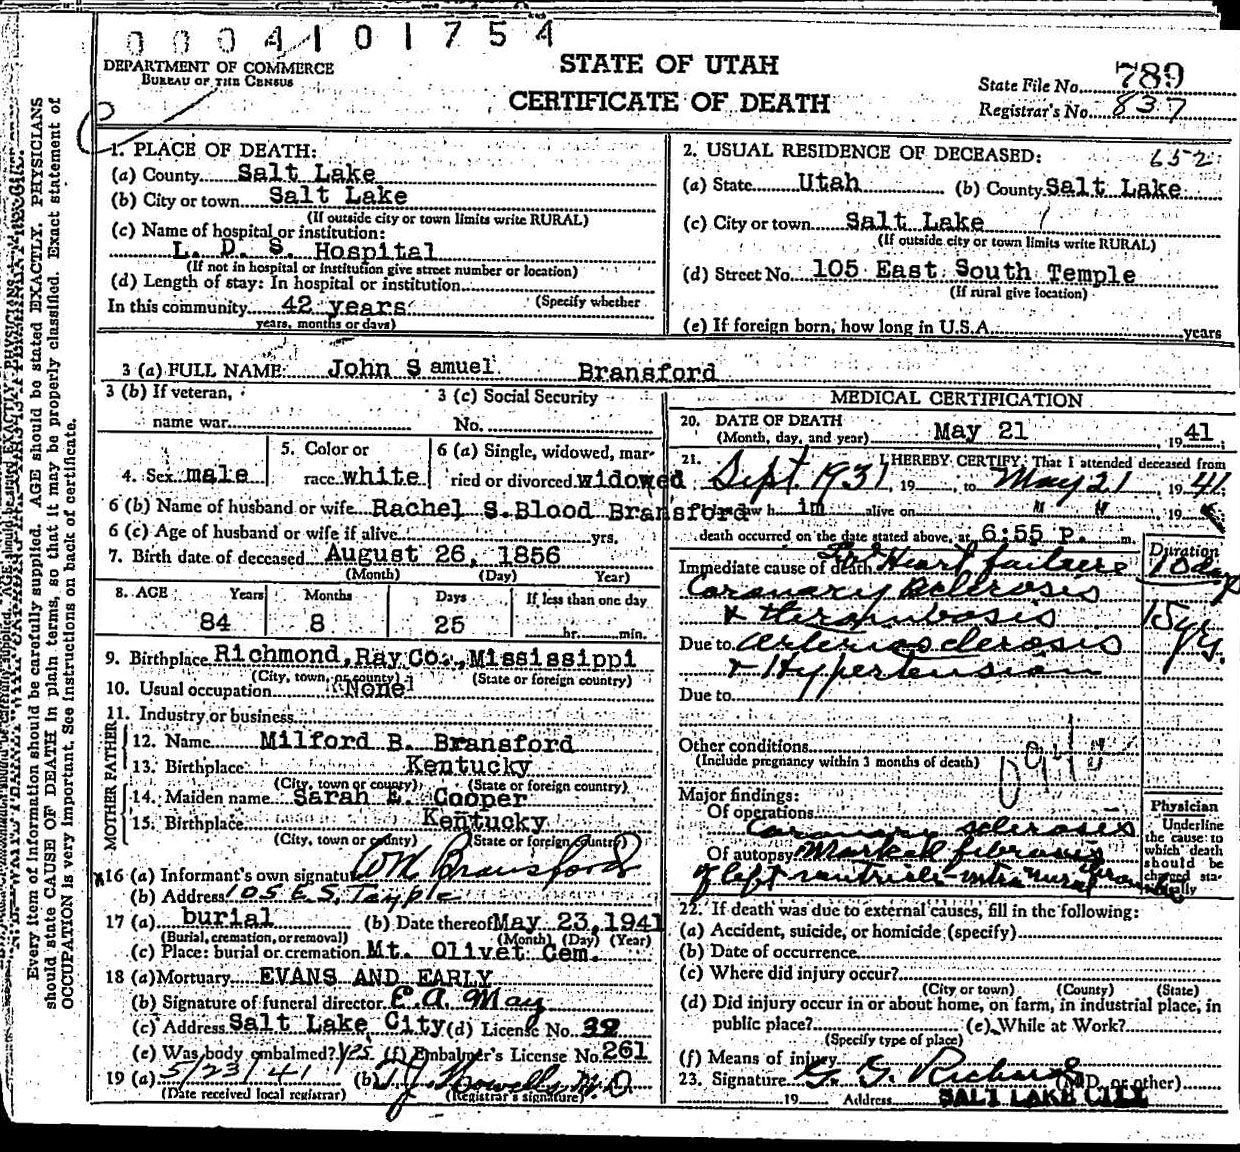 0004101754
DEPARTMENT OF COMMERCE
BUREAU OF THE CENSUS
STATE OF UTAH
CERTIFICATE OF DEATH
State File No. 789
Registrar's No. 837
Every item of information should be carefully supplied. AGE should be stated EXACTLY. PHYSICIANS
should state CAUSE OF DEATH in plain terms, so that it may be properly classified. Exact statement of
OCCUPATION is very important. See Instructions on back of certificate.
1. PLACE OF DEATH:
(a) County Salt Lake
(b) City or town Salt Lake
(If outside city or town limits write RURAL)
(c) Name of hospital or institution:
L. D. S. Hospital
(If not in hospital or institution give street number or location)
(d) Length of stay: In hospital or institution
(Specify whether
In this community 42 years
years, months or days)
2. USUAL RESIDENCE OF DECEASED: 652
(a) State Utah (b) County Salt Lake
(c) City or town Salt Lake
(If outside city or town limits write RURAL)
(d) Street No. 105 East South Temple
(If rural give location)
(e) If foreign born, how long in U.S.A. years
3 (a) FULL NAME: John Samuel Bransford
3 (b) If veteran,
name war
3 (c) Social Security
No.
4. Sex male
5. Color or
race white
6 (a) Single, widowed, mar-
ried or divorced widowed
6 (b) Name of husband or wife Rachel S. Blood Bransford
6 (c) Age of husband or wife if alive yrs.
7. Birth date of deceased August 26, 1856
(Month) (Day) Year)
8. AGE Years Months Days If less than one day
84 8 25 hr. min.
9. Birthplace Richmond, Ray Co., Mississippi
(City, town, or county) (State or foreign country)
10. Usual occupation None
11. Industry or business
FATHER
12. Name Milford B. Bransford
13. Birthplace Kentucky
(City, town or county) (State or foreign country)
MOTHER
14. Maiden name Sarah E. Cooper
15. Birthplace Kentucky
(City, town or county) (State or foreign country)
16 (a) Informant's own signature WM Bransford
(b) Address 105 E. S. Temple
17 (a) burial (b) Date thereof May 23, 1941
(Burial, cremation, or removal) (Month) (Day) (Year)
(c) Place: burial or cremation Mt. Olivet Cem.
18 (a) Mortuary EVANS AND EARLY
(b) Signature of funeral director E. A. May
(c) Address Salt Lake City (d) License No. 32
(e) Was body embalmed? yes (f) Embalmer's License No. 261
19 (a) 5/23/41 (b) T. J. Howells M. D
(Date received local registrar) (Registrar's signature)
MEDICAL CERTIFICATION
20. DATE OF DEATH
(Month, day, and year) May 21, 1941
21. I HEREBY CERTIFY: That I attended deceased from
Sept 1931, 19 , to May 21, 1941
I last saw h im alive on " " 19
death occurred on the date stated above, at 6:55 P. m.
Duration
Immediate cause of death Heart failure 10 days
Coronary Sclerosis
& thrombosis 15 yrs.
Due to arteriosclerosis
& Hypertension
Due to
Other conditions
(Include pregnancy within 3 months of death)
Major findings:
Of operations
Coronary sclerosis
Of autopsy Marked fibrosis
of left ventricle intra mural
Physician
Underline
the cause to
which death
should be
charged sta-
tistically
22. If death was due to external causes, fill in the following:
(a) Accident, suicide, or homicide (specify)
(b) Date of occurrence
(c) Where did injury occur?
(City or town) (County) (State)
(d) Did injury occur in or about home, on farm, in industrial place, in
public place? (e) While at Work?
(Specify type of place)
(f) Means of injury
23. Signature G. G. Richards (M.D. or other)
19 Address SALT LAKE CITY